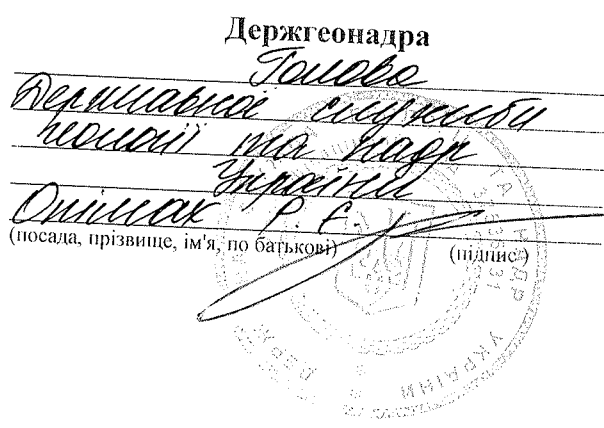 Держгеонадра
Голова
Державної служби
геології та надр
України
Опімах Р. Є.
(посада, прізвище, ім'я, по батькові) (підпис)
ТА НАДР УКРАЇНИ
ДЕРЖ